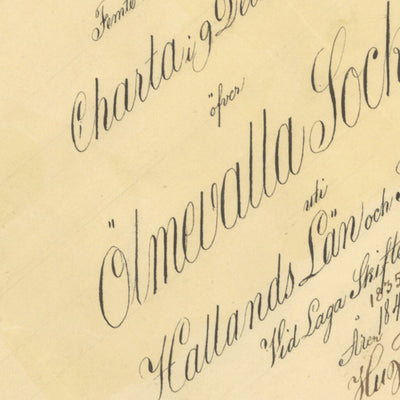 Femte
Charta i 9 De
öfver
Ölmevalla Sock
uti
Hallands Län och
Vid Laga Skifte
1835
Åren 184
Hug